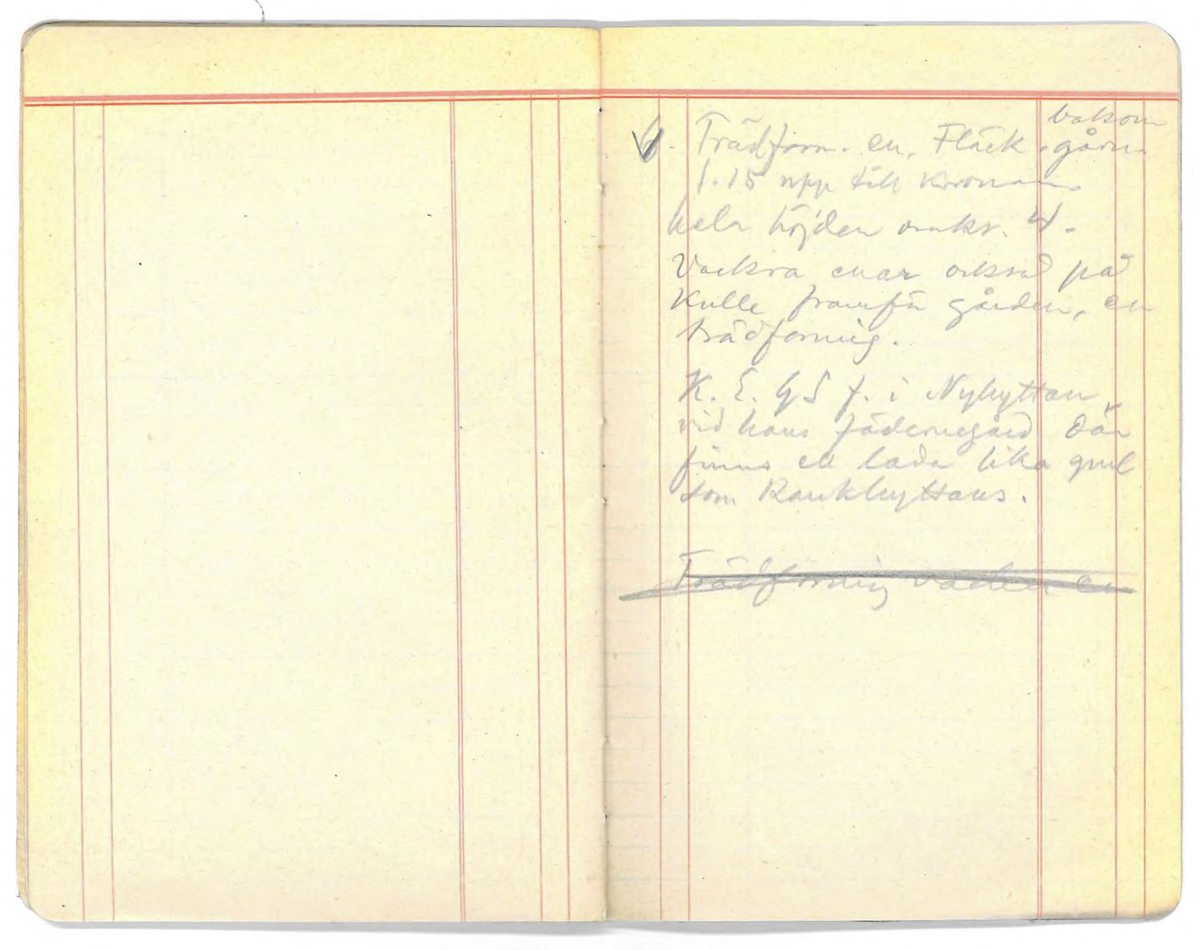 bakom
6. Trädform. en, Fläck gårn
1.15 upp till kronan.
hela höjden omkr. 4.
Vackra enar också på
Kulle framför gården, en
trädformig.
K. E. G f. i Nyhyttan,
vid hans fädernegård där
finns en lada lika gml
som Rankhyttans.
Trädformig en